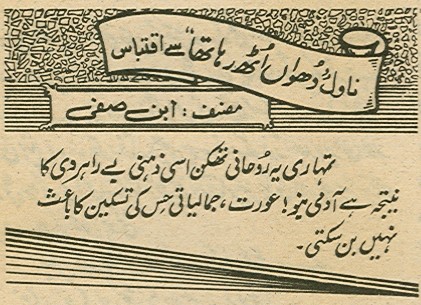 ناول "دُھواں اُٹھ رہا تھا" سے اقتباس
مصنف : ابن صفی
تمہاری یہ رُوحانی تھکن اسی ذہنی بے راہروی کا
نیتجہ ہے آدمی بنو! عورت، جمالیاتی حِس کی تسکین کا باعث
نہیں بن سکتی۔